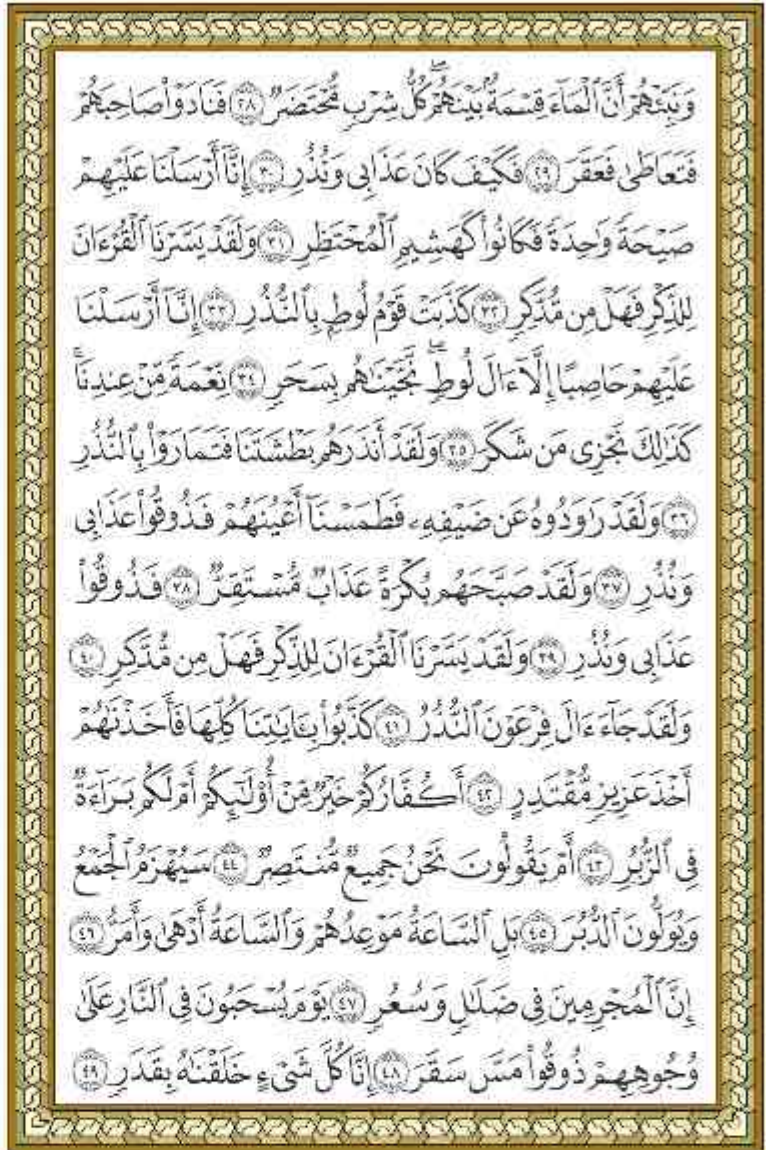 وَنَبِّئْهُمْ أَنَّ ٱلْمَآءَ قِسْمَةٌۢ بَيْنَهُمْ ۖ كُلُّ شِرْبٍ مُّحْتَضَرٌ ﴿٢٨﴾ فَنَادَوْا۟ صَاحِبَهُمْ
فَتَعَاطَىٰ فَعَقَرَ ﴿٢٩﴾ فَكَيْفَ كَانَ عَذَابِى وَنُذُرِ ﴿٣٠﴾ إِنَّآ أَرْسَلْنَا عَلَيْهِمْ
صَيْحَةً وَٰحِدَةً فَكَانُوا۟ كَهَشِيمِ ٱلْمُحْتَظِرِ ﴿٣١﴾ وَلَقَدْ يَسَّرْنَا ٱلْقُرْءَانَ
لِلذِّكْرِ فَهَلْ مِن مُّدَّكِرٍ ﴿٣٢﴾ كَذَّبَتْ قَوْمُ لُوطٍۭ بِٱلنُّذُرِ ﴿٣٣﴾ إِنَّآ أَرْسَلْنَا
عَلَيْهِمْ حَاصِبًا إِلَّآ ءَالَ لُوطٍ ۖ نَّجَّيْنَٰهُم بِسَحَرٍ ﴿٣٤﴾ نِّعْمَةً مِّنْ عِندِنَا ۚ
كَذَٰلِكَ نَجْزِى مَن شَكَرَ ﴿٣٥﴾ وَلَقَدْ أَنذَرَهُم بَطْشَتَنَا فَتَمَارَوْا۟ بِٱلنُّذُرِ
﴿٣٦﴾ وَلَقَدْ رَٰوَدُوهُ عَن ضَيْفِهِۦ فَطَمَسْنَآ أَعْيُنَهُمْ فَذُوقُوا۟ عَذَابِى
وَنُذُرِ ﴿٣٧﴾ وَلَقَدْ صَبَّحَهُم بُكْرَةً عَذَابٌ مُّسْتَقِرٌّ ﴿٣٨﴾ فَذُوقُوا۟
عَذَابِى وَنُذُرِ ﴿٣٩﴾ وَلَقَدْ يَسَّرْنَا ٱلْقُرْءَانَ لِلذِّكْرِ فَهَلْ مِن مُّدَّكِرٍ ﴿٤٠﴾
وَلَقَدْ جَآءَ ءَالَ فِرْعَوْنَ ٱلنُّذُرُ ﴿٤١﴾ كَذَّبُوا۟ بِـَٔايَٰتِنَا كُلِّهَا فَأَخَذْنَٰهُمْ
أَخْذَ عَزِيزٍ مُّقْتَدِرٍ ﴿٤٢﴾ أَكُفَّارُكُمْ خَيْرٌ مِّنْ أُو۟لَٰٓئِكُمْ أَمْ لَكُم بَرَآءَةٌ
فِى ٱلزُّبُرِ ﴿٤٣﴾ أَمْ يَقُولُونَ نَحْنُ جَمِيعٌ مُّنتَصِرٌ ﴿٤٤﴾ سَيُهْزَمُ ٱلْجَمْعُ
وَيُوَلُّونَ ٱلدُّبُرَ ﴿٤٥﴾ بَلِ ٱلسَّاعَةُ مَوْعِدُهُمْ وَٱلسَّاعَةُ أَدْهَىٰ وَأَمَرُّ ﴿٤٦﴾
إِنَّ ٱلْمُجْرِمِينَ فِى ضَلَٰلٍ وَسُعُرٍ ﴿٤٧﴾ يَوْمَ يُسْحَبُونَ فِى ٱلنَّارِ عَلَىٰ
وُجُوهِهِمْ ذُوقُوا۟ مَسَّ سَقَرَ ﴿٤٨﴾ إِنَّا كُلَّ شَىْءٍ خَلَقْنَٰهُ بِقَدَرٍ ﴿٤٩﴾